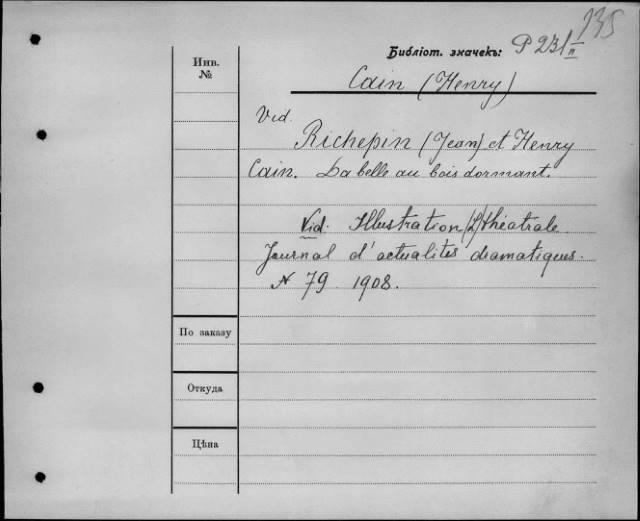 135
Библіот. значекъ: P 231 I/II
Инв.
№
Cain (Henry)
Vid.
Richepin (Jean) et Henry
Cain. La belle au bois dormant.
Vid. Illustration (L') théatrale.
Journal d'actualités dramatiques.
N 79 1908.
По заказу
Откуда
Цѣна